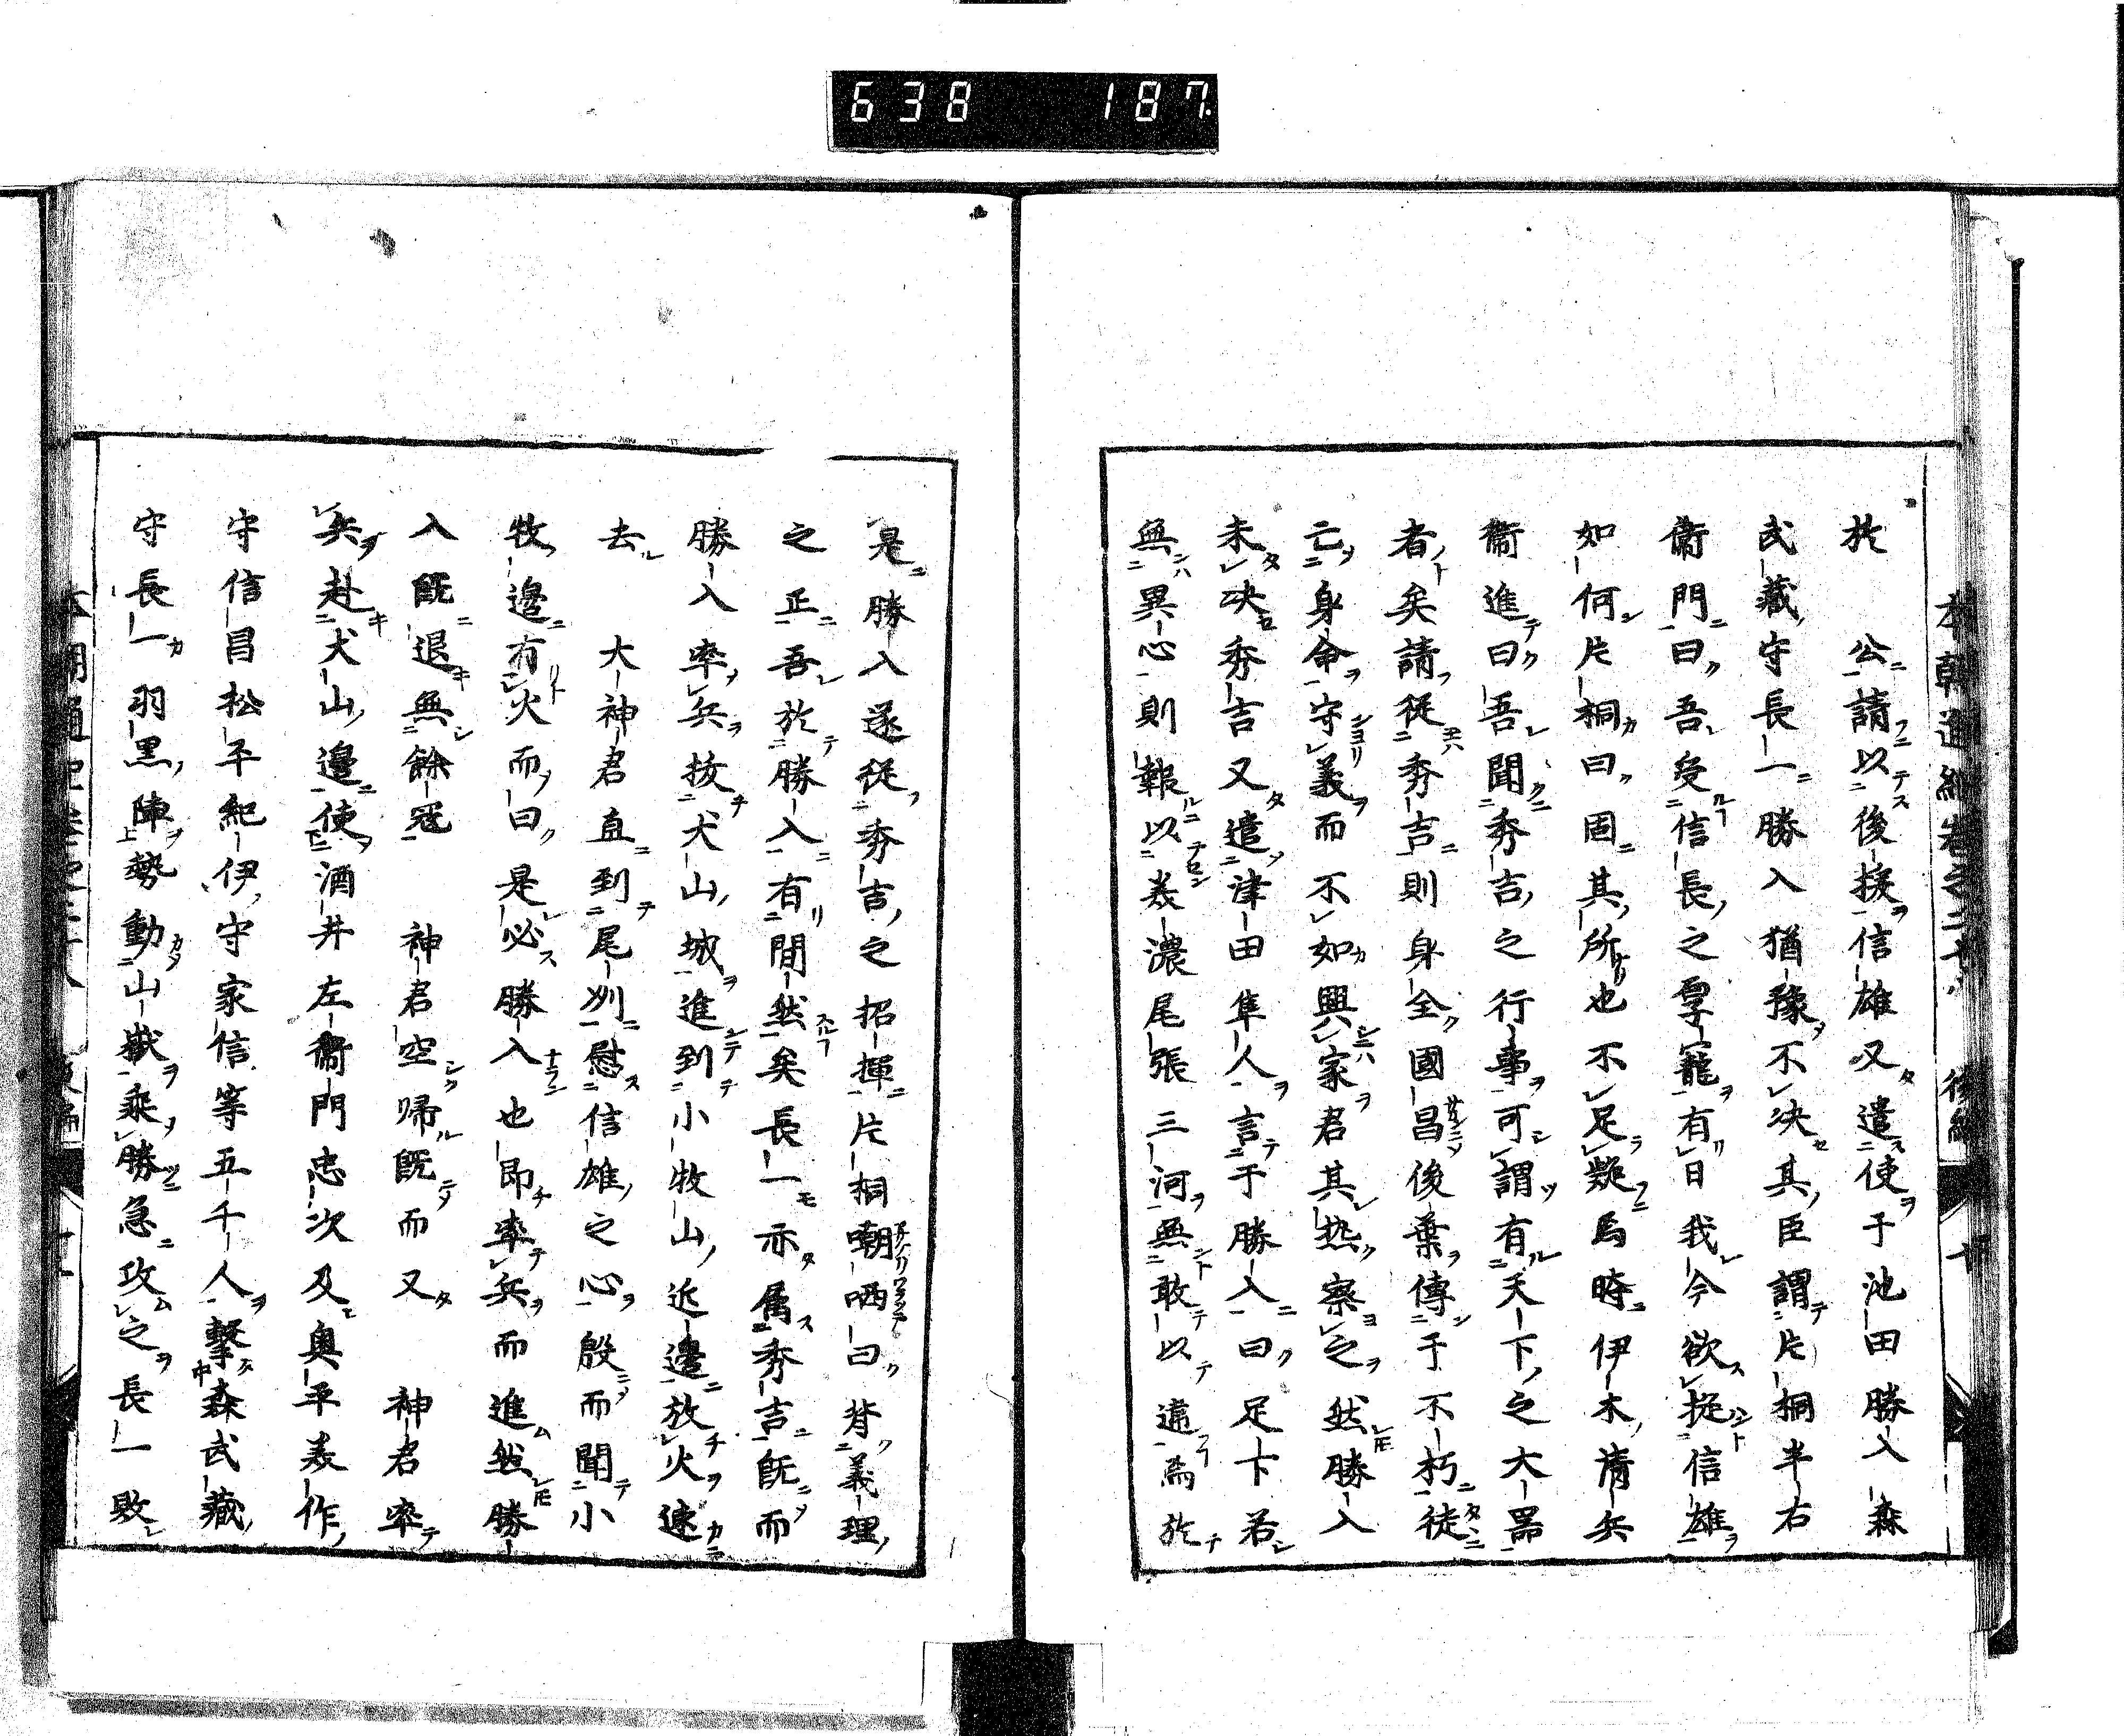 638 187
於 公請以後援信雄又遣使于池田勝入森
武藏守長一勝入猶豫不決其臣謂片桐半右
衛門曰吾受信長之厚寵有日我今欲捉信雄
如何片桐曰固其所也不足疑焉時伊木清兵
衛進曰吾聞秀吉之行事可謂有天下之大器
者矣請從秀吉則身全國昌後葉傳于不朽徒
亡身命守義而不如興家君其熟察之然勝入
未決秀吉又遣津田隼人言于勝入曰足下若
無異心則報以美濃尾張三河無敢以違焉於
是勝入遂從秀吉之招揮片桐嘲哂曰背義理
之正吾於勝入有間然矣長一亦属秀吉既而
勝入率兵拔犬山城進到小牧山近邊放火速
去 大神君直到尾州慰信雄之心殷而聞小
牧邊有火而曰是必勝入也即率兵而進然勝
入既退無餘冦 神君空帰既而又 神君率
兵赴犬山邊使酒井左衛門忠次及奥平美作
守信昌松平紀伊守家信等五千人擊森武藏
守長一羽黒陣勢動山嶽乘勝急攻之長一敗